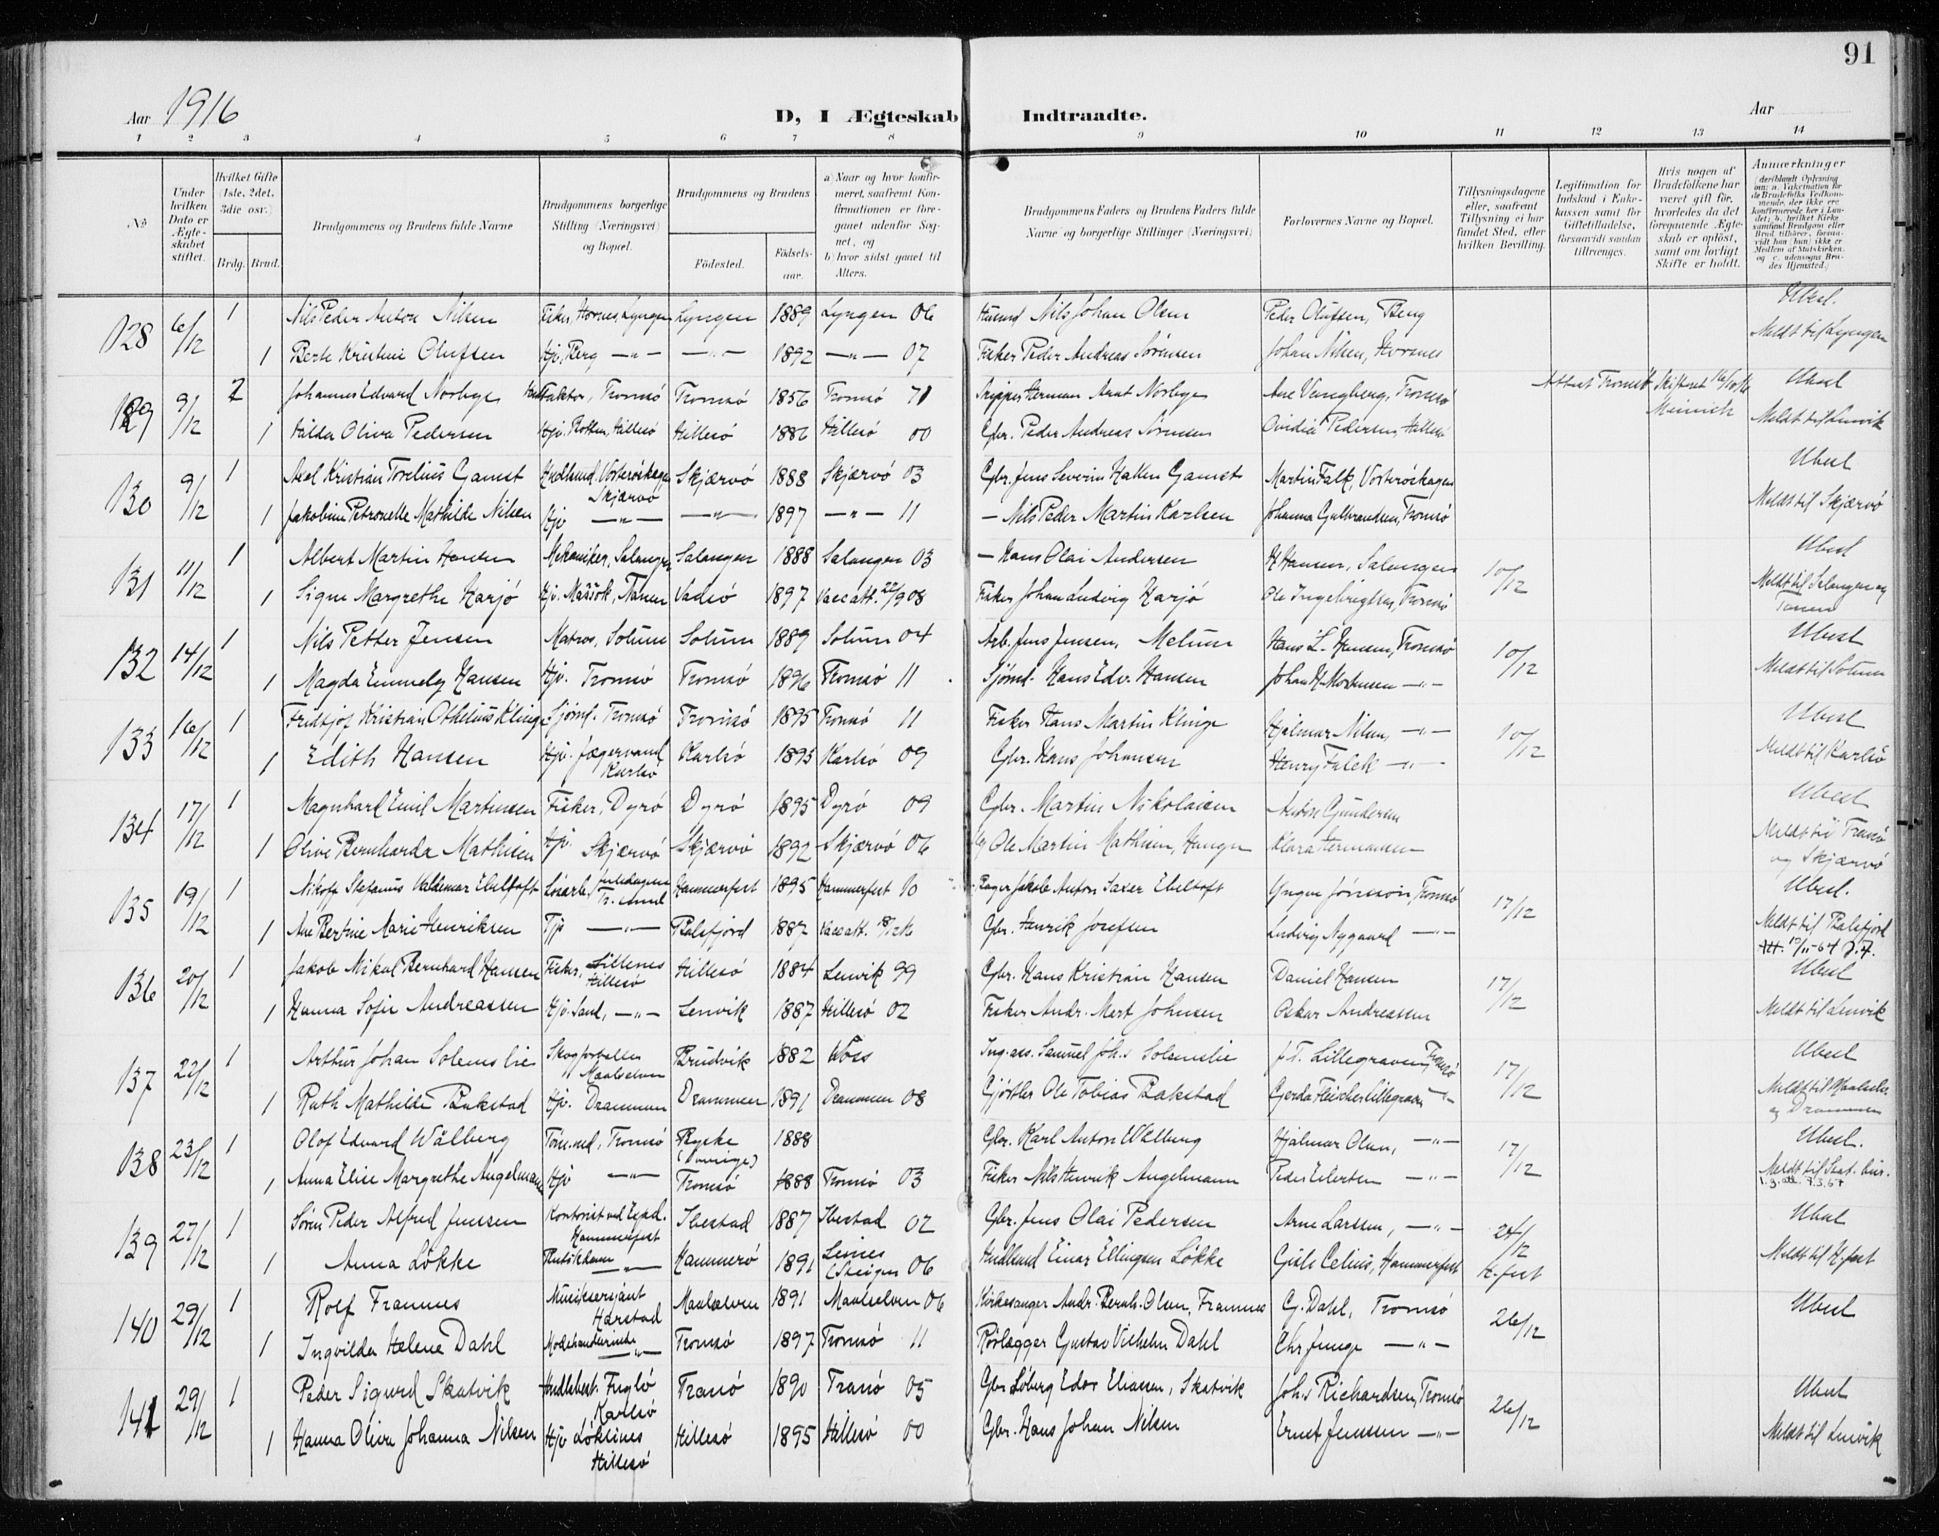 91
Aar 1916 D, I Ægteskab Indtraadte. Aar
1 2 3 4 5 6 7 8 9 10 11 12 13 14
No
Under hvilken Dato er Ægteskabet stiftet.
Hvilket Gifte (1ste, 2det, 3die osv.)
Brdg. Brud.
Brudgommens og Brudens fulde Navne
Brudgommens borgerlige Stilling (Næringsvei) og Bopæl.
Brudgommens og Brudens
Födested. Födselsaar.
a) Naar og hvor konfirmeret, saafremt Konfirmationen er foregaaet udenfor Sognet, og
b) hvor sidst gaaet til Alters.
Brudgommens Faders og Brudens Faders fulde Navne og borgerlige Stillinger (Næringsvei)
Forlovernes Navne og Bopæl.
Tillysningsdagene eller, saafremt Tillysning ei har fundet Sted, efter hvilken Bevilling.
Legitimation for Indskud i Enkekassen samt for Giftetilladelse, forsaavidt saadan tiltrænges.
Hvis nogen af Brudefolkene har været gift før, hvorledes da det foregaaende Ægteskab er opløst, samt om lovligt Skifte er holdt.
Anmærkninger
128 6/12 1 Nils Peder Anton Nilsen Fisker, Hornes, Lyngen Lyngen 1889 Lyngen 06 Nils Johan Olsen Peder Olufsen, Berg Ubesl.
1 Berte Kristine Olufsen Hjv, Berg —„— —„— 1892 —„— 07 Fisker Peder Andreas Sørensen Johan Nilsen, Hornes Meldt til Lyngen
129 9/12 2 Johannes Edvard Norbye Faktor, Tromsö Tromsö 1856 Tromsö 71 Skipper Herman Arnt Norbye Ane Vangberg, Tromsö Attest Tromsö Skifteret 16/10/16 Ubesl
1 Hilda Oliva Pedersen Hjv. Hillesö Hillesö 1886 Hillesö 00 Gbr. Peder Andreas Sørensen Ovidia Pedersen, Hillesö Meldt til Lenvik
130 9/12 1 Axel Kristian Torelius Gamst Handlsmd, Vorterøskagen Skjærvö Skjærvö 1888 Skjærvö 03 Gbr. Jens Severin Gamst Martin Falk, Vorterøskagen Ubesl
1 Jakobine Petronelle Mathilde Nilsen Hjv —„— —„— 1897 —„— 11 — Nils Peder Martin Karlsen Johanna Gulbrandsen, Tromsö Meldt til Skjærvö
131 11/12 1 Albert Martin Hansen Mekaniker, Salangen Salangen 1888 Salangen 03 — Hans Olai Andersen H Hansen, Salangen 10/12 Ubesl
1 Signe Margrethe Harjö Hjv. Tanen Vadsö 1897 Vaccatt. 22/9 08 Fisker Johan Ludvig Harjö Ole Ingebrigtsen, Tromsö Meldt til Salangen og Tanen
132 14/12 1 Nils Petter Jensen Matros, Solum Solum 1889 Solum 04 Arb. Jens Jensen, Melum Hans L. Hansen, Tromsö 10/12 Ubesl
1 Magda Emmely Hansen Hjv. Tromsö Tromsö 1896 Tromsö 11 Sjömd. Hans Edv. Hansen Johan H. Mortensen —„— Meldt til Solum
133 16/12 1 Fridtjof Kristian Othelius Klinge Sjömd. Tromsö Tromsö 1895 Tromsö 11 Fisker Hans Martin Klinge Hjalmar Nilsen, —„— 10/12 Ubesl
1 Edith Hansen Hjv. Jægervand Karlsö Karlsö 1895 Karlsö 09 Gbr. Hans Johansen Henry Falck —„— Meldt til Karlsö
134 17/12 1 Magnhard Emil Martinsen Fisker, Dyrö Dyrö 1895 Dyrö 09 Gbr. Martin Nikolaisen Gundersen Ubesl
1 Olive Bernharda Mathisen Hjv. Skjærvö Skjærvö 1892 Skjærvö 06 Ole Martin Mathisen, Klara Hermansen Meldt til Tranö og Skjærvö
135 19/12 1 Stefanus Valdemar Ebeltoft Hammerfest 1895 Hammerfest 10 Bager Jakob Anton Saxer Ebeltoft Yngvar Jönsson, Tromsö 17/12 Ubesl.
1 Ane Bertine Marie Henriksen Tjp —„— Balsfjord 1887 Vaccatt. Gbr. Henrik Josefsen Ludvig Nygaard —„— Meldt til Balsfjord
136 20/12 1 Jakob Nikal Bernhard Hansen Fisker, Lillenes Hillesö Hillesö 1884 Lenvik 99 Gbr. Hans Kristian Hansen Daniel Hansen 17/12 Ubesl
1 Hanna Sofie Andreassen Hjv. Sand, —„— Lenvik 1887 Hillesö 02 Fisker Andr. Mert Johnsen Oskar Andreassen Meldt til Lenvik
137 22/12 1 Arthur Johan Solemslie Skogforvalter Maalselven Bruvik 1882 Voss Ing. ass. Samuel Joh.s Solemslie J. T. Lillegraven, Tromsö 17/12 Ubesl
1 Ruth Mathilde Bakstad Hjv. Drammen Drammen 1891 Drammen 08 Gjørtler Ole Tobias Bakstad Gerda Fleischer Lillegraven —„— Meldt til Maalselv og Drammen
138 23/12 1 Olof Edvard Wälberg Töm.md, Tromsö Byske (Sverige) 1888 Gbr. Karl Anton Wälberg Hjalmar Olsen, —„— 17/12 Ubesl.
1 Anna Elise Margrethe Angelmann Hjv —„— Tromsö 1888 Tromsö 03 Fisker Nils Henrik Angelmann Peder Eilertsen —„— Meldt til Stat. bur.
139 27/12 1 Sören Peder Alfred Jenssen Kontorist Hammerfest Ibestad 1887 Ibestad 02 Gbr. Jens Olai Pedersen Arne Larssen, —„— 24/12 H.fest Ubesl
1 Anna Løkke —„— Hammerö 1891 Leines (Steigen 06 Handlsmd Einar Ellingsen Løkke Gisle Celius, Hammerfest Meldt til H.fest
140 29/12 1 Rolf Framnes Musiksersjant Harstad Maalselven 1891 Maalselven 06 Kirkesanger Andr. Bernh. Olsen, Framnes G. Dahl, Tromsö 26/12 Ubesl
1 Ingvilda Helene Dahl Modehandlerinde —„— Tromsö 1897 Tromsö 11 Rørlægger Gustav Vilhelm Dahl Chr Junge —„—
141 29/12 1 Peder Sigurd Skatvik Handlsbest. Fuglö Karlsö Tranö 1890 Tranö 05 Gbr Edor Eliassen, Skatvik Joh.s Richardsen, Tromsö 26/12 Ubesl
1 Hanna Oliva Johanna Nilsen Hjv Hillesö Hillesö 1895 Hillesö 00 Gbr. Hans Johan Nilsen Ernst Jenssen —„— Meldt til Lenvik